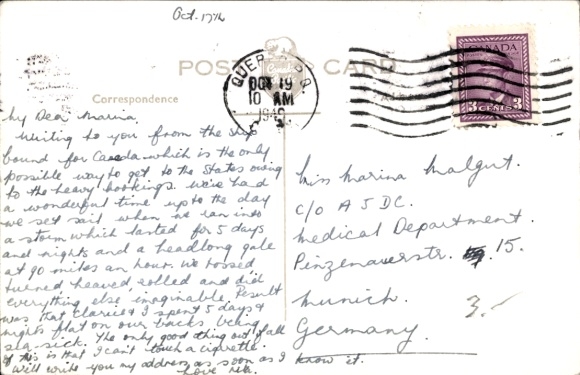 Oct. 17th
POST CARD
Correspondence
QUEBEC P.Q.
OCT 19
10 AM
1946
CANADA
3 CENTS 3
My Dear Marina,
Writing to you from the ship
bound for Canada which is the only
possible way to get to the States owing
to the heavy bookings. We've had
a wonderful time up to the day
we set sail when we ran into
a storm which lasted for 5 days
and nights and a headlong gale
at 90 miles an hour. We tossed
turned, heaved, rolled and did
everything else imaginable. Result
was that Clarice & I spent 5 days &
nights flat on our backs being
sea-sick. The only good thing out of all
of this is that I can't touch a cigarette.
Will write you my address as soon as I know it.
Love
Miss Marina Malgut.
c/o A J D C.
Medical Department.
Pinzenauerstr. 15.
Munich.
Germany.
3.-